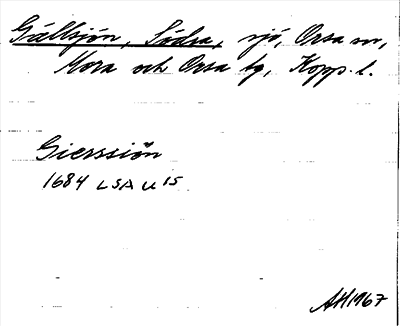 Gällsjön, Södra, sjö, Orsa sn,
Mora och Orsa tg, Kopp. l.
Gierssiön
1684 LSA U 15
AH 1967